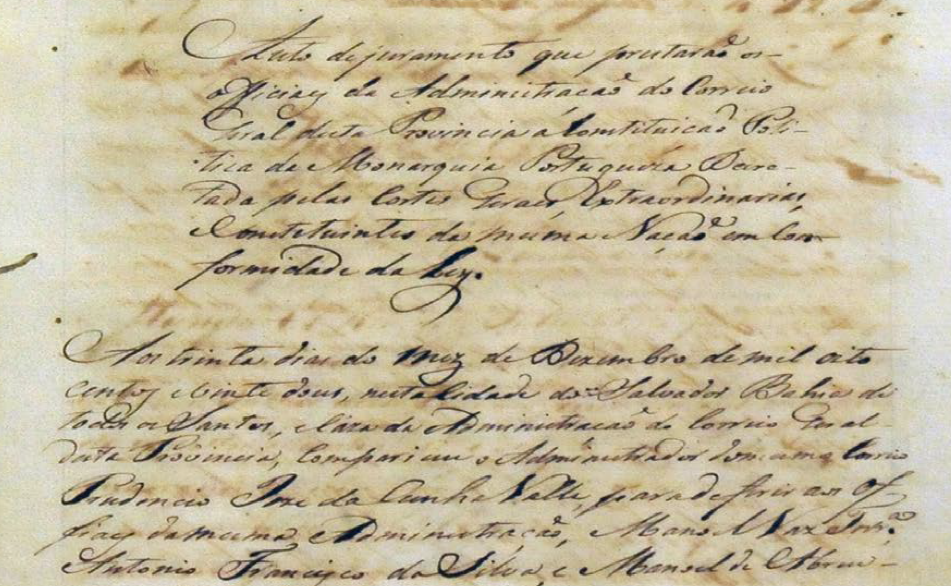 Auto de juramento que prestarão os
officiaes da Administracaõ do Correio
Geral desta Provincia á Constituicaõ Poli-
tica da Monarquia Portugueza Decre-
tada pelas Cortes Geraes Extraordinarias,
e Constituintes da mesma Naçaõ em Con-
formidade da Ley.
Aos trinta dias do mez de Dezembro de mil oito
centos e vinte dous, nesta Cidade do Salvador Bahia de
todos os Santos, e Caza da Administracaõ do Correio Geral
desta Provincia, Compareceu o Administrador do mesmo Correio
Prudencio Joze da Cunha Valle, para deferir aos Of-
ficiaes da mesma Administração, Manoel Vaz
Antonio Francisco da Silva, e Manoel de Abreu-